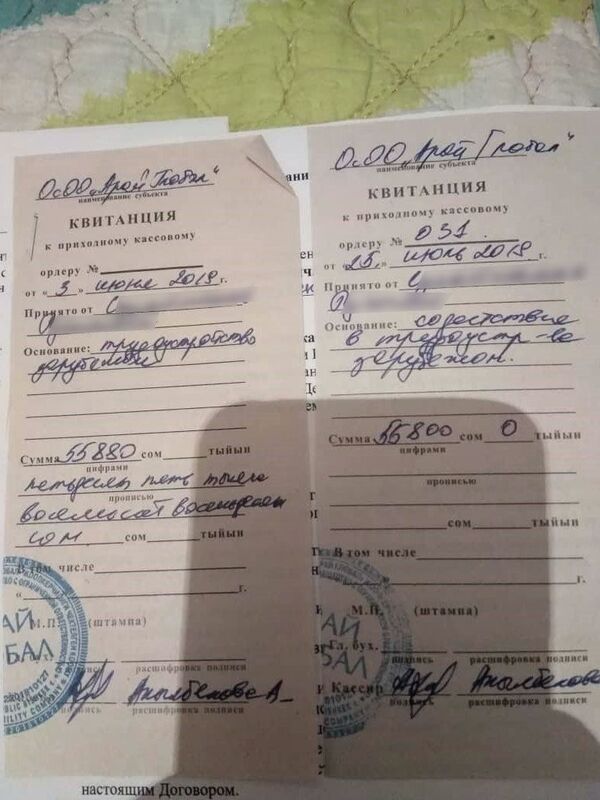 ОсОО "Арай Глобал"
наименование субъекта
КВИТАНЦИЯ
к приходному кассовому
ордеру №
от « 3 » июня 2019 г.
Принято от С
Основание: трудоустройство
зарубежом
Сумма 55880 сом тыйын
цифрами
пятьдесят пять тысяч
прописью
восемьсот восемьдесят
сом сом тыйын
В том числе
« г.
М.П. (штампа)
подпись расшифровка подписи
Акылбекова А
подпись расшифровка подписи
ОсОО "Арай Глобал"
наименование субъекта
КВИТАНЦИЯ
к приходному кассовому
ордеру № 031
от «25» июль 2019 г.
Принято от С
Основание: содействие
в трудоустр-ве
зарубежом.
Сумма 55800 сом 0 тыйын
цифрами
прописью
сом тыйын
В том числе
г.
М.П. (штампа)
Гл. бух.
подпись расшифровка подписи
Кассир Акылбекова
подпись расшифровка подписи
АЙ
БАЛ
АЙ
БАЛ
настоящим Договором.